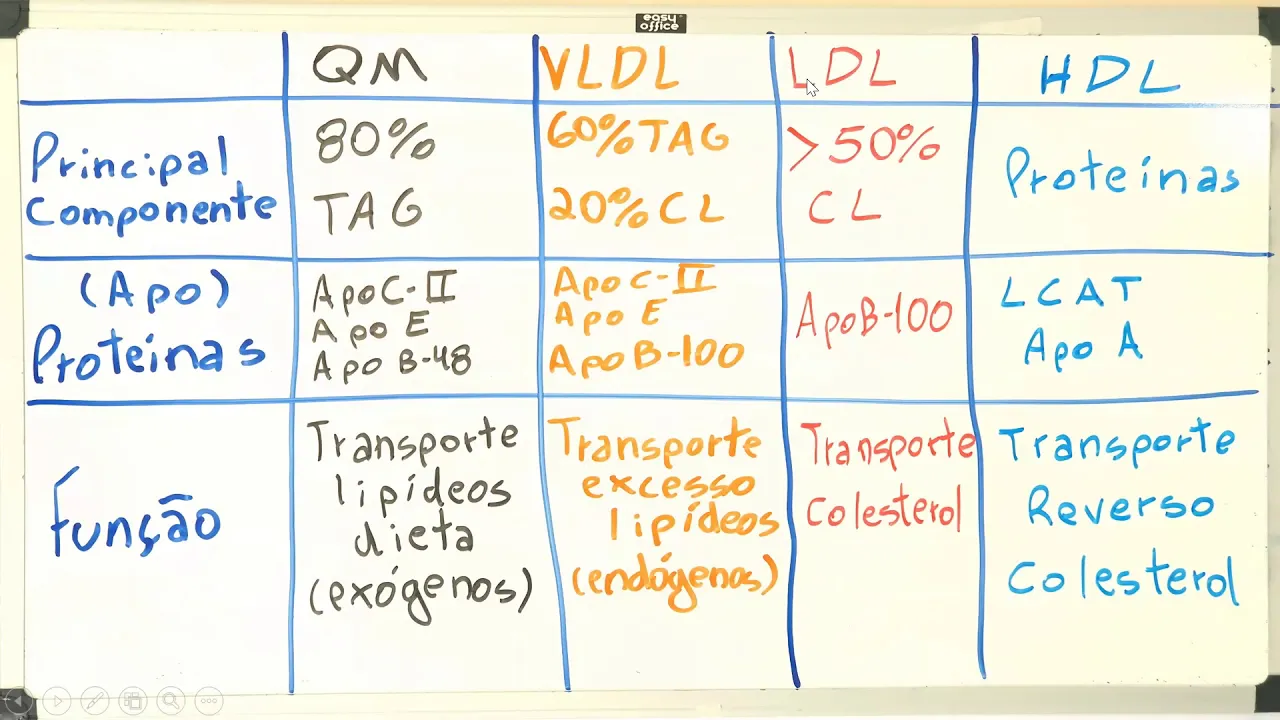 easy
office
QM
VLDL
LDL
HDL
Principal
Componente
80%
TAG
60% TAG
20% CL
>50%
CL
Proteínas
(Apo)
Proteínas
ApoC-II
Apo E
Apo B-48
Apo C-II
Apo E
Apo B-100
ApoB-100
LCAT
Apo A
Função
Transporte
lipídeos
dieta
(exógenos)
Transporte
excesso
lipídeos
(endógenos)
Transporte
Colesterol
Transporte
Reverso
Colesterol